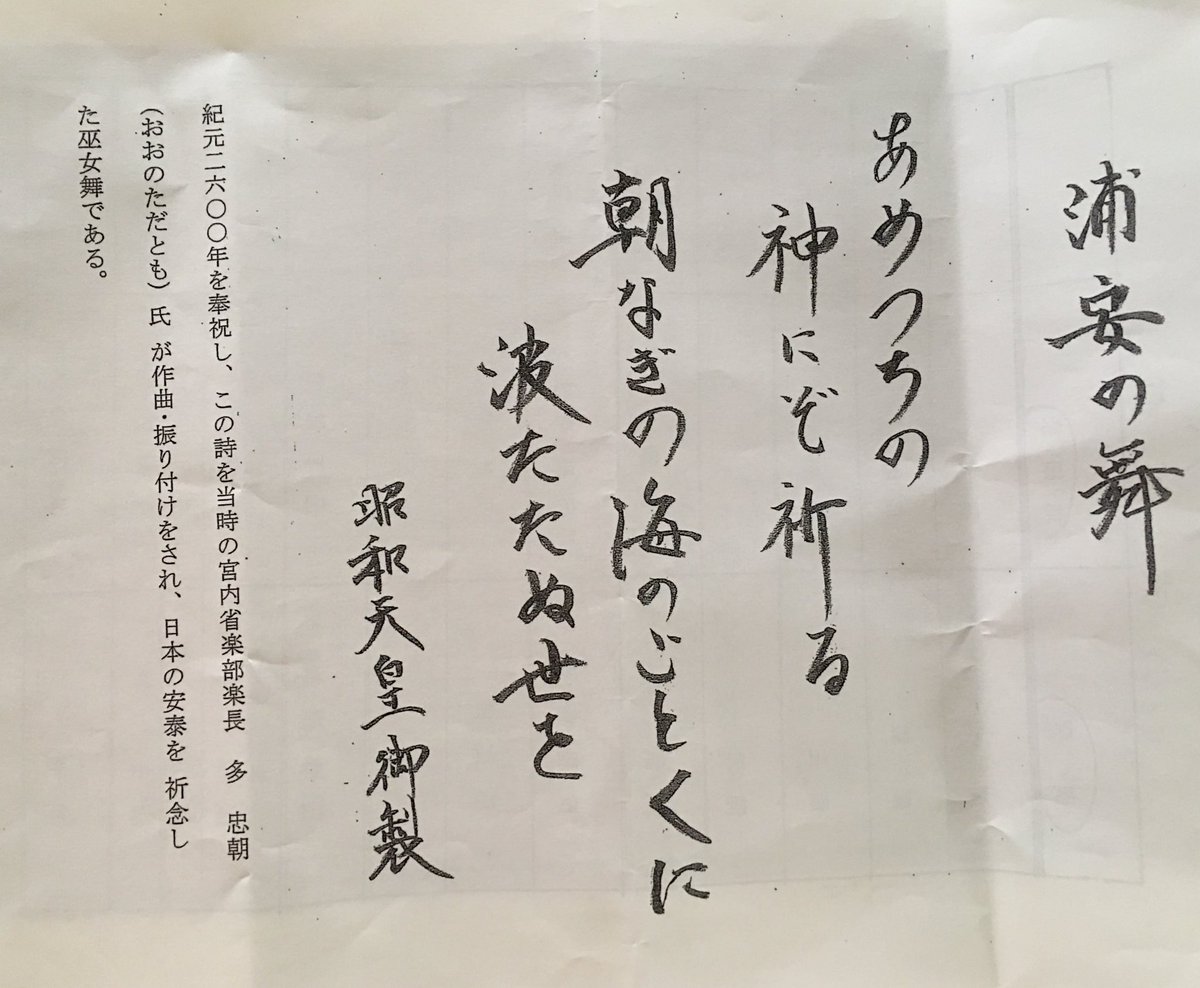 浦安の舞
あめつちの
神にぞ祈る
朝なぎの海のごとくに
波たたぬ世を
昭和天皇御製
紀元二六〇〇年を奉祝し、この詩を当時の宮内省楽部楽長　多　忠朝
(おおのただとも)氏 が作曲・振り付けをされ、日本の安泰を 祈念し
た巫女舞である。